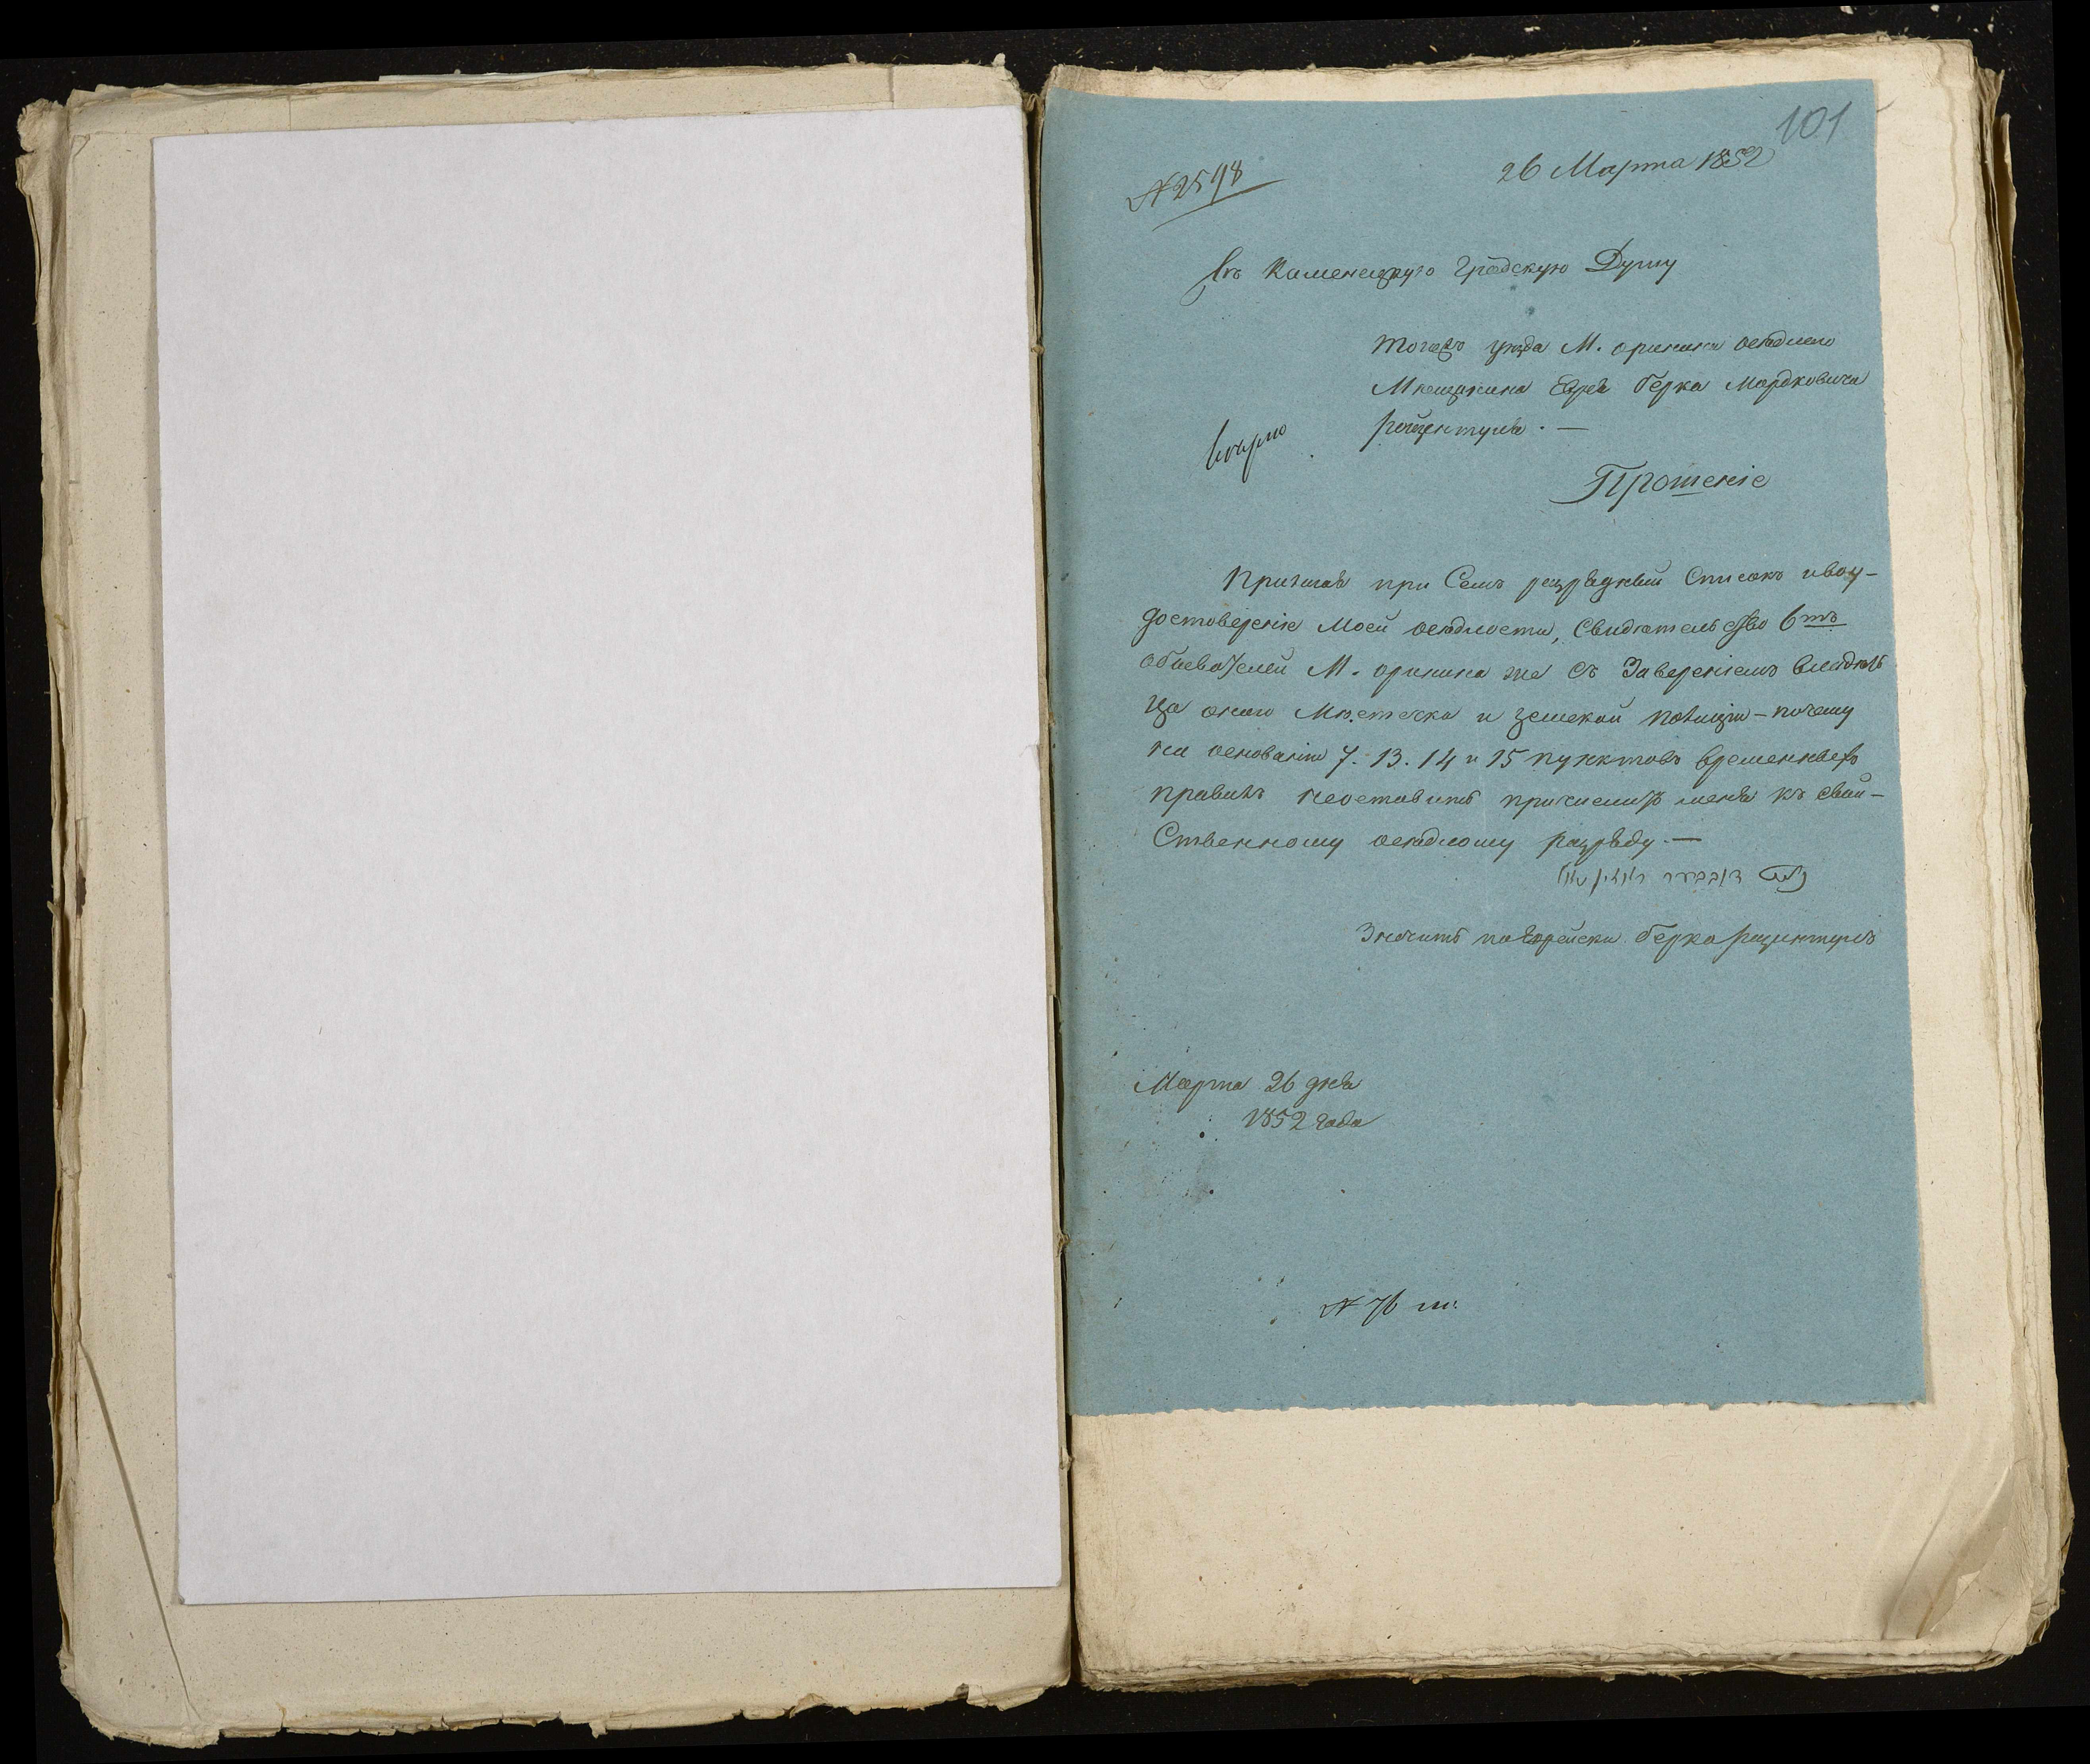 101
26 Марта 1852
№ 2598
Въ Каменецкую Градскую Думу
тогожъ уезда М. оринина оседлаго
Мещанина Еврея Берка Мордковича
Прошеніе
Прилагая при Семъ разрядный Списокъ и во у-
достоверение Моей оседлости, Свидетельство 6ть
обывателей М. оринина же съ Завереніемъ владель
ца онаго Местечка и земской полиции - почему
на основаніи 7. 13. 14 и 15 пунктовъ временныхъ
правилъ неоставить причислить меня къ свой-
Ственному оседлому разряду. —
Значитъ поеврейски Берко
Марта 26 дня
1852 года
№ 76